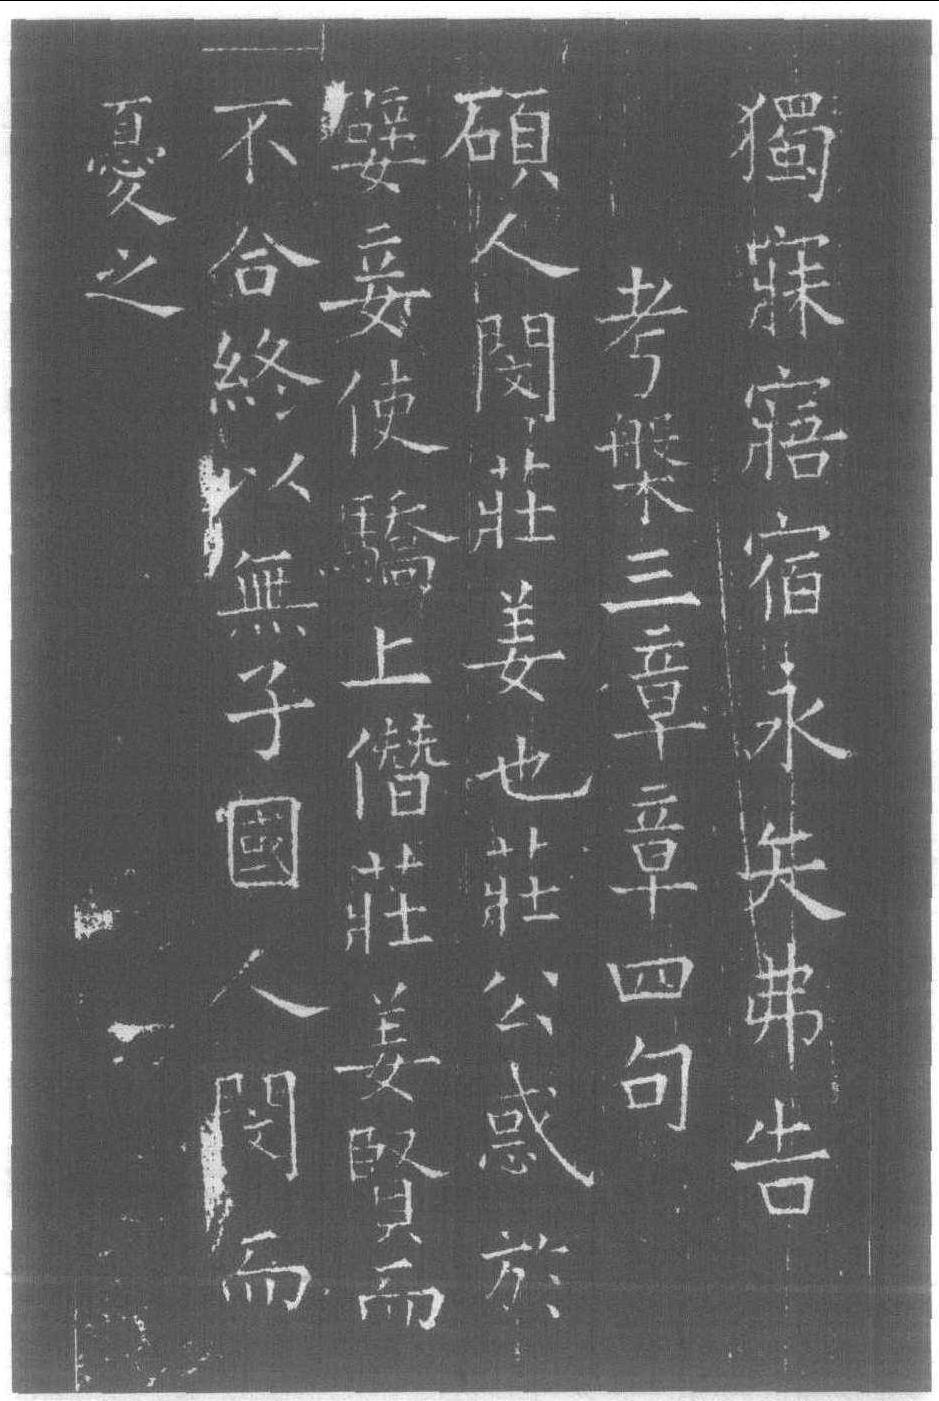 獨寐寤宿永矢弗告
考槃三章章四句
碩人閔莊姜也莊公惑於
嬖妾使驕上僭莊姜賢而
不合終以無子國人閔而
憂之